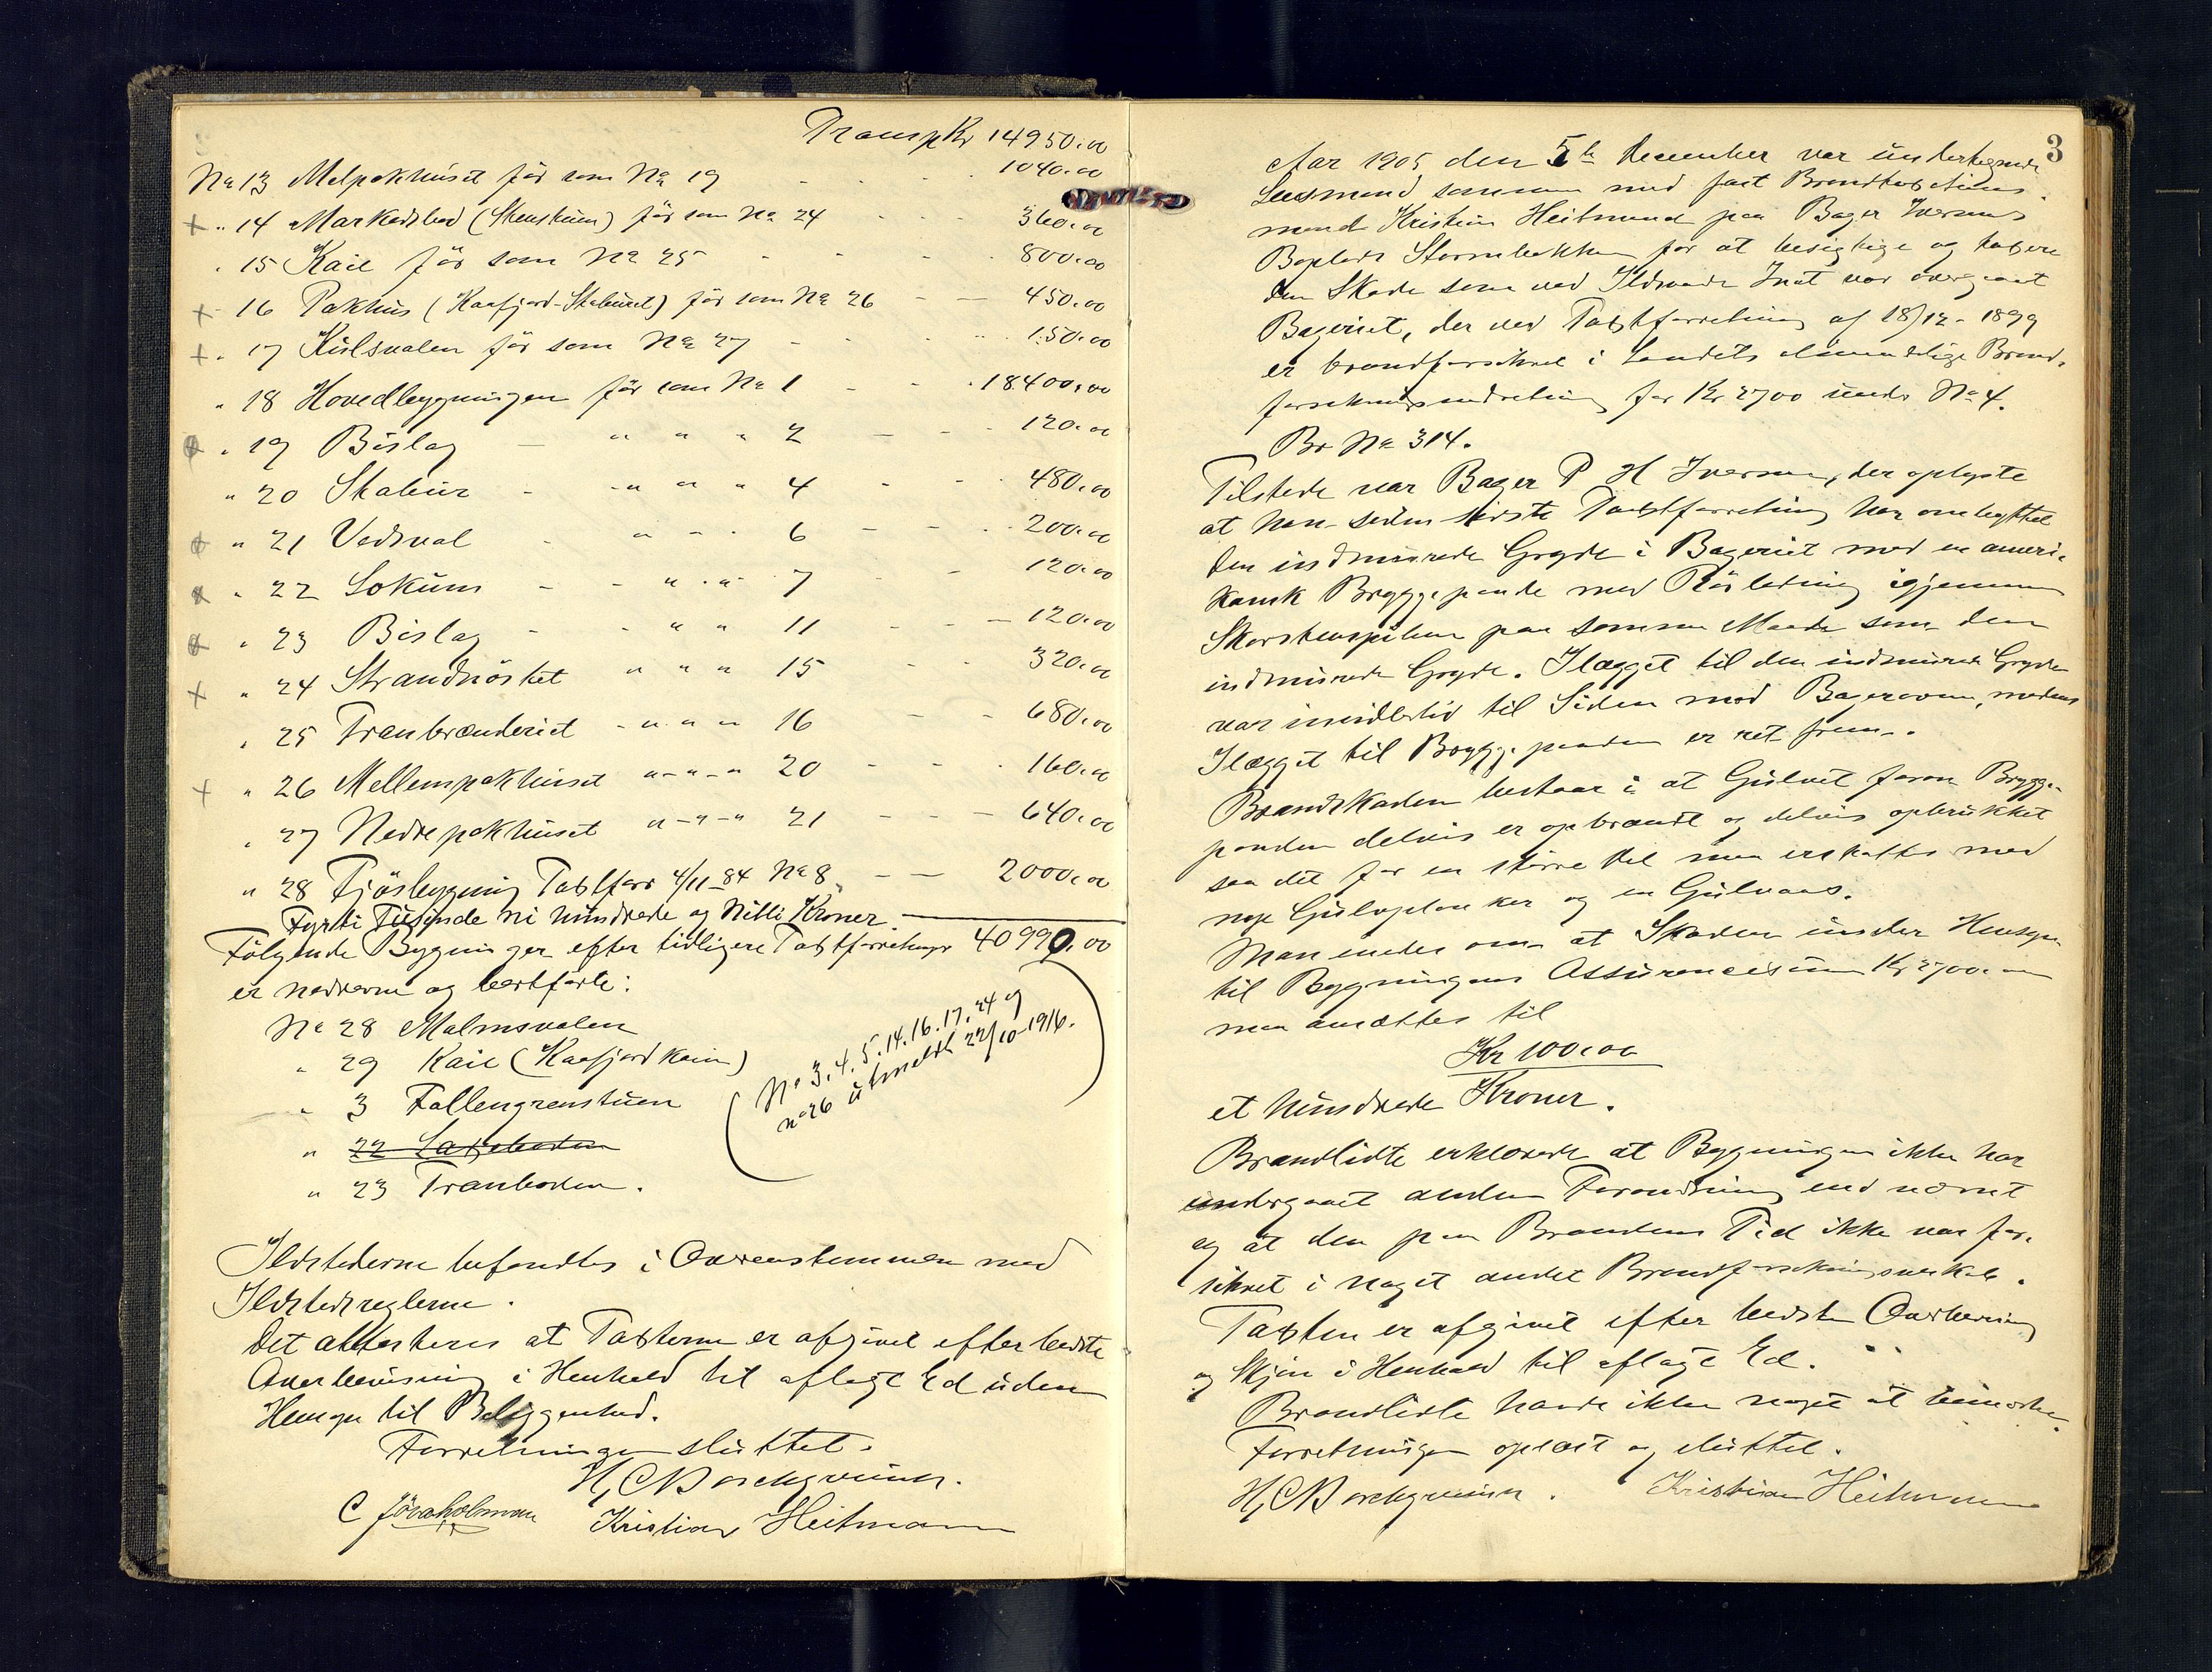 Transp Kr 14950.00
No 13 Melpakhuset før som No 19 - - - 1040.00
+ " 14 Markedsbod (Stenstuen) før som No 24 - - - 360.00
" 15 Kaie før som No 25 - - - 800.00
+ " 16 Pakhus (Kaafjord-Staburet) før som No 26 - - 450.00
+ " 17 Kulsvalen før som No 27 - - - 150.00
" 18 Hovedbygningen før som No 1 - - - 18400.00
" 19 Bislag - " " " 2 - - - 120.00
" 20 Stabur - " " " 4 - - - 480.00
" 21 Vedsval - " " " 6 - - - 200.00
" 22 Lokum - - " " 7 - - 120.00
" 23 Bislag - - " " 11 - - - 120.00
+ " 24 Strandnöstet " " " 15 - - 320.00
" 25 Tranbrænderiet - " " " 16 - - 680.00
+ " 26 Mellempakhuset " - " - " 20 - - - 160.00
" 27 Nedrepakhuset " - " - " 21 - - - 640.00
" 28 Fjösbygning Taxtforr 4/11-84 No 8 - - 2000.00
Fyrti Tusinde ni hundrede og Nitti Kroner
40990.00
Følgende Bygninger efter tidligere Taxtforretninger
er nedrevne og bortførte:
No 28 Malmsvalen
" 29 Kaie (Kaafjordkaien)
" 3 Fallengrenstuen
" 22 Laxeboden
" 23 Tranboden.
(No 3. 4. 5. 14. 16. 17. 24 og
No 26 utmeldt 22/10-1916.)
Ildstederne befandtes i Overenstemmen med
Ildstedsreglerne.
Det attesteres at Taxterne er afgivet efter bedste
Overbevisning i Henhold til aflagt Ed uden
Hensyn til Beliggenhed.
Forretningen sluttet.
H, C Borchgrevink.
C Kristian Heitmann
3
Aar 1905 den 5te December var undertegnede
Lensmand sammen med fast Brandtaxtions
mand Kristian Heitmand paa Bager Iversens
Boplads Strombakken for at besigtige og taxere
den Skade som ved Ildsvaade Inat var overgaaet
Bageriet, der ved Taxtforretning af 28/12-1899
er brandforsikret i Landets almindelige Brand-
forsikringsindretning for Kr 2700 under No 4.
Br No 314.
Tilstede var Bager P H Iversen, der oplyste
at han siden sidste Taxtforretning har ombyttet
den indmurede Gryde i Bageriet med en ameri-
kansk Bryggepande med Rörledning igjennem
Skorstenspiben paa samme Maade som den
indmurede Gryde. Ilægget til den indmurede Gryde
var imidlertid til Siden mod Bagerovnen, medens
Ilægget til Bryggepanden er ret frem.
Brandskaden bestaar i at Gulvet foran Brygge-
panden delvis er opbrændt og delvis opbrukket
saa det for en større Del maa erstattes med
nye Gulvplanker og en Gulvaas.
Man enedes om at Skaden under Hensyn
til Bygningens Assurancesum Kr 2700.00
maa ansættes til
Kr 100.00
et hundrede Kroner.
Brandlidte erklærede at Bygningen ikke har
undergaaet anden Forandring end nævnt
og at den paa Brandens Tid ikke var for-
sikret i noget andet Brandforsikringsselskab.
Taxten er afgivet efter bedste Overbevisning
og Skjøn i Henhold til aflagt Ed.
Brandlidte havde ikke noget at bemærke.
Forretningen oplæst og sluttet.
H, C Borchgrevink. Kristian Heitmann